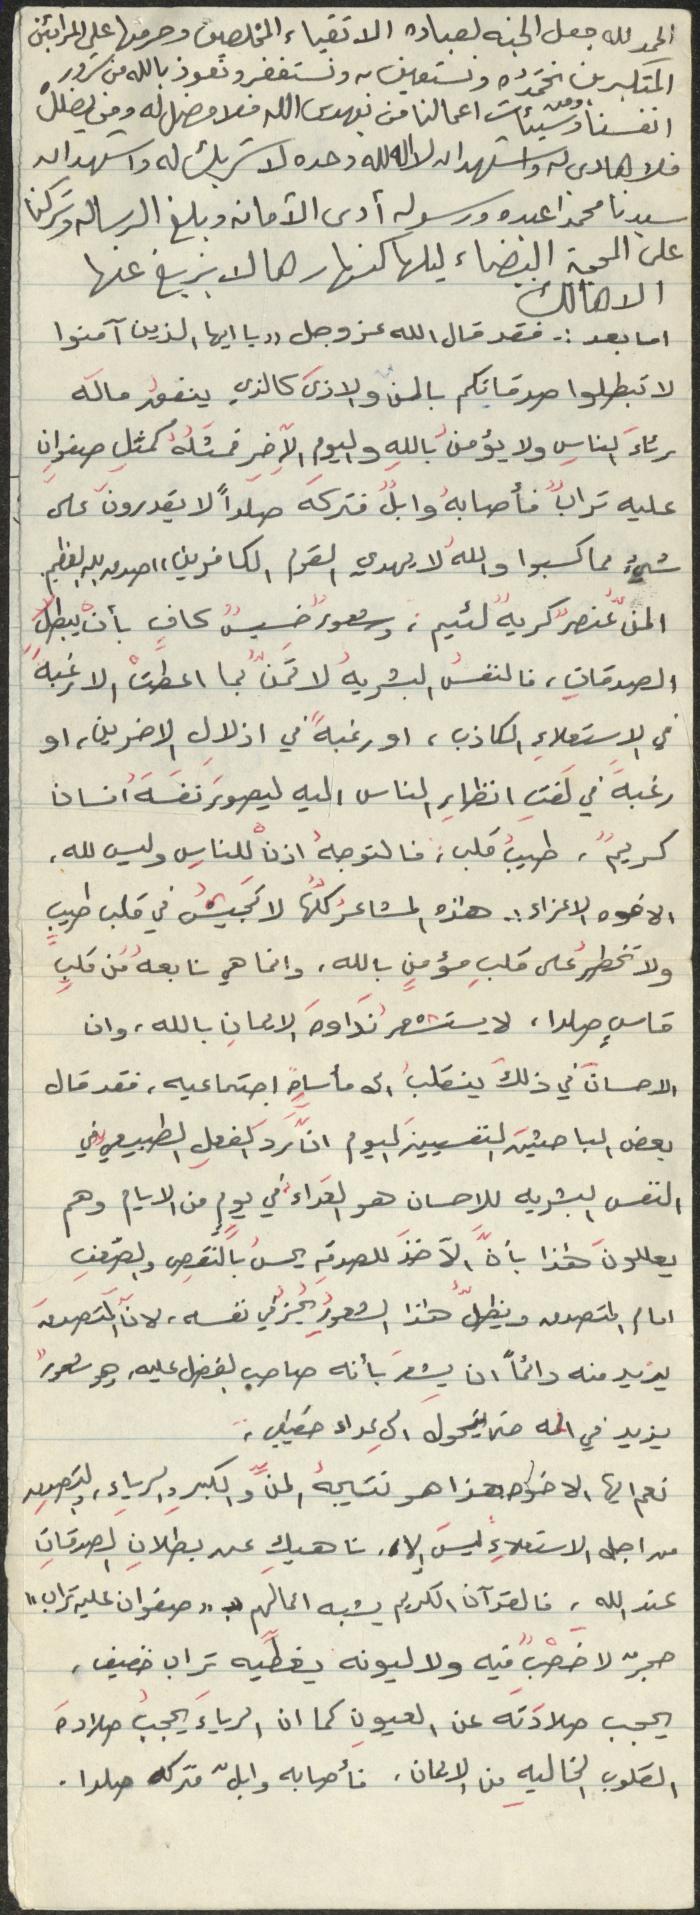 الحمد لله جعل الجنه لعباده الاتقياء المخلصين وحرمها على المرائين
المتكبرين نحمده ونستعين به ونستغفره ونعوذ بالله من شرور
انفسنا ومن سيئات اعمالنا من يهدى الله فلا مضل له ومن يضلل
فلا هادى له واشهد ان لا اله الا الله وحده لا شريك له واشهد ان
سيدنا محمدا عبده ورسوله أدى الأمانه وبلغ الرساله وتركنا
على المحجة البيضاء ليلها كنهارها لا يزيغ عنها
الا هالك
اما بعد :. فقد قال الله عز وجل "يا ايها الذين آمنوا
لا تبطلوا صدقاتكم بالمنِّ والاذىَ كالذي ينفقُ مالَه
رئاءَ الناسِ ولا يؤمنُ باللهِ واليومِ الآخِرِ فمثَلُهُ كمثلِ صفوانٍ
عليه ترابٌ فأصابهُ وابلٌ فتركَه صلداً لا يقدرونَ على
شيءٍ مما كسبوا واللهُ لا يهدي القوم الكافرين" صدق الله العظيم.
المنّ عُنصرٌ كريهٌ لئيم ، وشعورٌ خسيسٌ كافٍ بأنْ يبطلَ
الصدقاتِ ، فالنفسُ البشريهُ لا تمنُّ بما اعطتْ الا رغبةً
في الاستعلاءِ الكاذب ، او رغبةً في اذلالِ الاخرين ، او
رغبةً في لَفتِ انظارِ الناس اليه ليصورَ نفسَهَ أنسان
كريمٌ ، طيبُ قلب ، فالتوجهُ اذنْ للناسِ وليس لله ،
الاخوه الاعزاء :. هذه المشاعرُ كلُّها لا تَجيشُ في قلب طيبٍ
ولا تخطرُ على قلبِ مؤمنٍ بالله ، وانما هي نابعهٌ مُن قلبٍ
قاسٍ صلدا ، لا يستشعر نَداوةَ الايمانِ بالله ، وان
الاحسانَ في ذلكَ ينقلبُ الى مأساةٍ اجتماعيه ، فقد قال
بعض الباحثين النفسيين اليوم انَّ رَدَ الفعلِ الطبيعيِ في
النفس البشريه للاحسان هو العَداءُ في يومٍ من الايام وهم
يعللونَ هذا بأنَّ الآخذَ للصدقةِ يحسُ بالنقصِ والضعفِ
امام المتصدق ويظلُّ هذا الشعورُ يحزُّ في نفسه ، لانَّ المتصدقَ
يريد منه دائماً ان يشعرَ بأنه صاحب الفضل عليه ، وهو شعورٌ
يزيد في المه حتى يتحولَ الى عداء حقيقي ،
نعم ايها الاخوه هذا هو نتيجهُ المنِّ والكبرِ والرياءِ ، والتصدق
من اجل الاستعلاءِ ليسَ إلا ، ناهيكَ عن بطلانِ الصدقاتِ
عند الله ، فالقرآن الكريم يشبه اعمالهم بـ "صفوان عليه تراب"
حجرٌ لا خصْبٌ فيه ولا ليونه يغطِّيه تراب خفيف ،
يحجب صلادَتَه عن العيونِ كما ان الرياءَ يحجبُ صلادةَ
القلوبِ الخاليهِ من الايمان ، فأصابه وابلٌ فتركه صلدا .